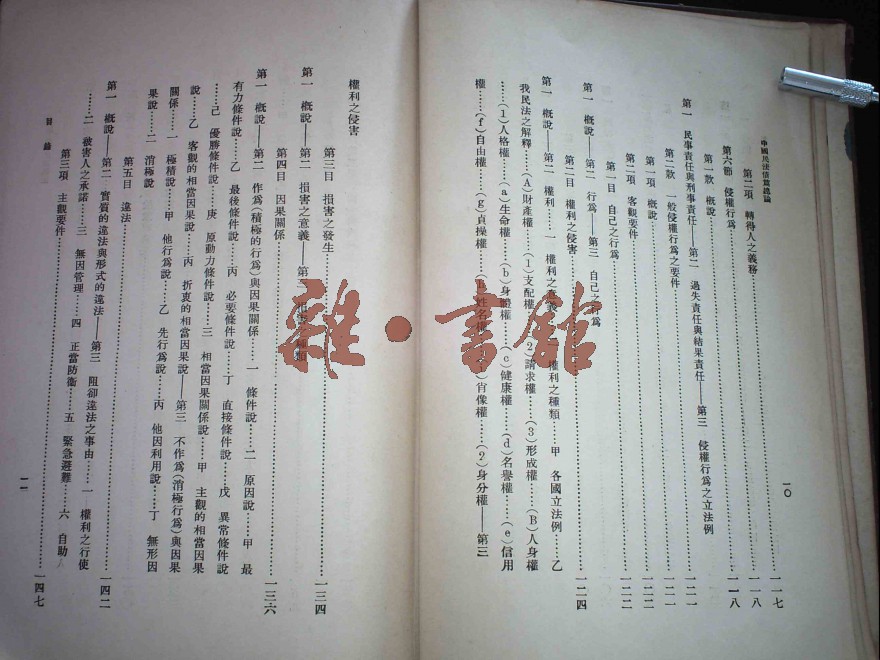 中國民法債篇總論
一〇
第二項 轉得人之義務……一一七
第六節 侵權行爲……一一八
第一款 概說……一一八
第一 民事責任與刑事責任——第二 過失責任與結果責任——第三 侵權行爲之立法例
第二款 一般侵權行爲之要件……一二一
第一項 概說……一二一
第二項 客觀要件……一二二
第一目 自己之行爲……一二二
第一 概說——第二 行爲——第三 自己之行爲
第二目 權利之侵害……一二四
第一 概說——第二 權利……一 權利之意義……二 權利之種類……甲 各國立法例……乙
我民法之解釋……(A)財產權……(1)支配權……(2)請求權……(3)形成權……(B)人身權
……(1)人格權……(a)生命權……(b)身體權……(c)健康權……(d)名譽權……(e)信用
權……(f)自由權……(g)貞操權……(h)姓名權……(i)肖像權……(2)身分權——第三
權利之侵害
第三目 損害之發生……一三四
第一 概說——第二 損害之意義——第三 損害之種類
第四目 因果關係……一三六
第一 概說——第二 作爲(積極的行爲)與因果關係……一 條件說……二 原因說……甲 最
有力條件說……乙 最後條件說……丙 必要條件說……丁 直接條件說……戊 異常條件說
……己 優勝條件說……庚 原動力條件說……三 相當因果關係說……甲 主觀的相當因果
說……乙 客觀的相當因果說……丙 折衷的相當因果說——第三 不作爲(消極行爲)與因果
關係……一 積極說……甲 他行爲說……乙 先行爲說……丙 他因利用說……丁 無形因
果說……二 消極說
第五目 違法……一四二
第一 概說——第二 實質的違法與形式的違法——第三 阻卻違法之事由……一 權利之行使
……二 被害人之承諾……三 無因管理……四 正當防衛……五 緊急避難……六 自助
第三項 主觀要件……一四七
目錄
一一
雜·書館